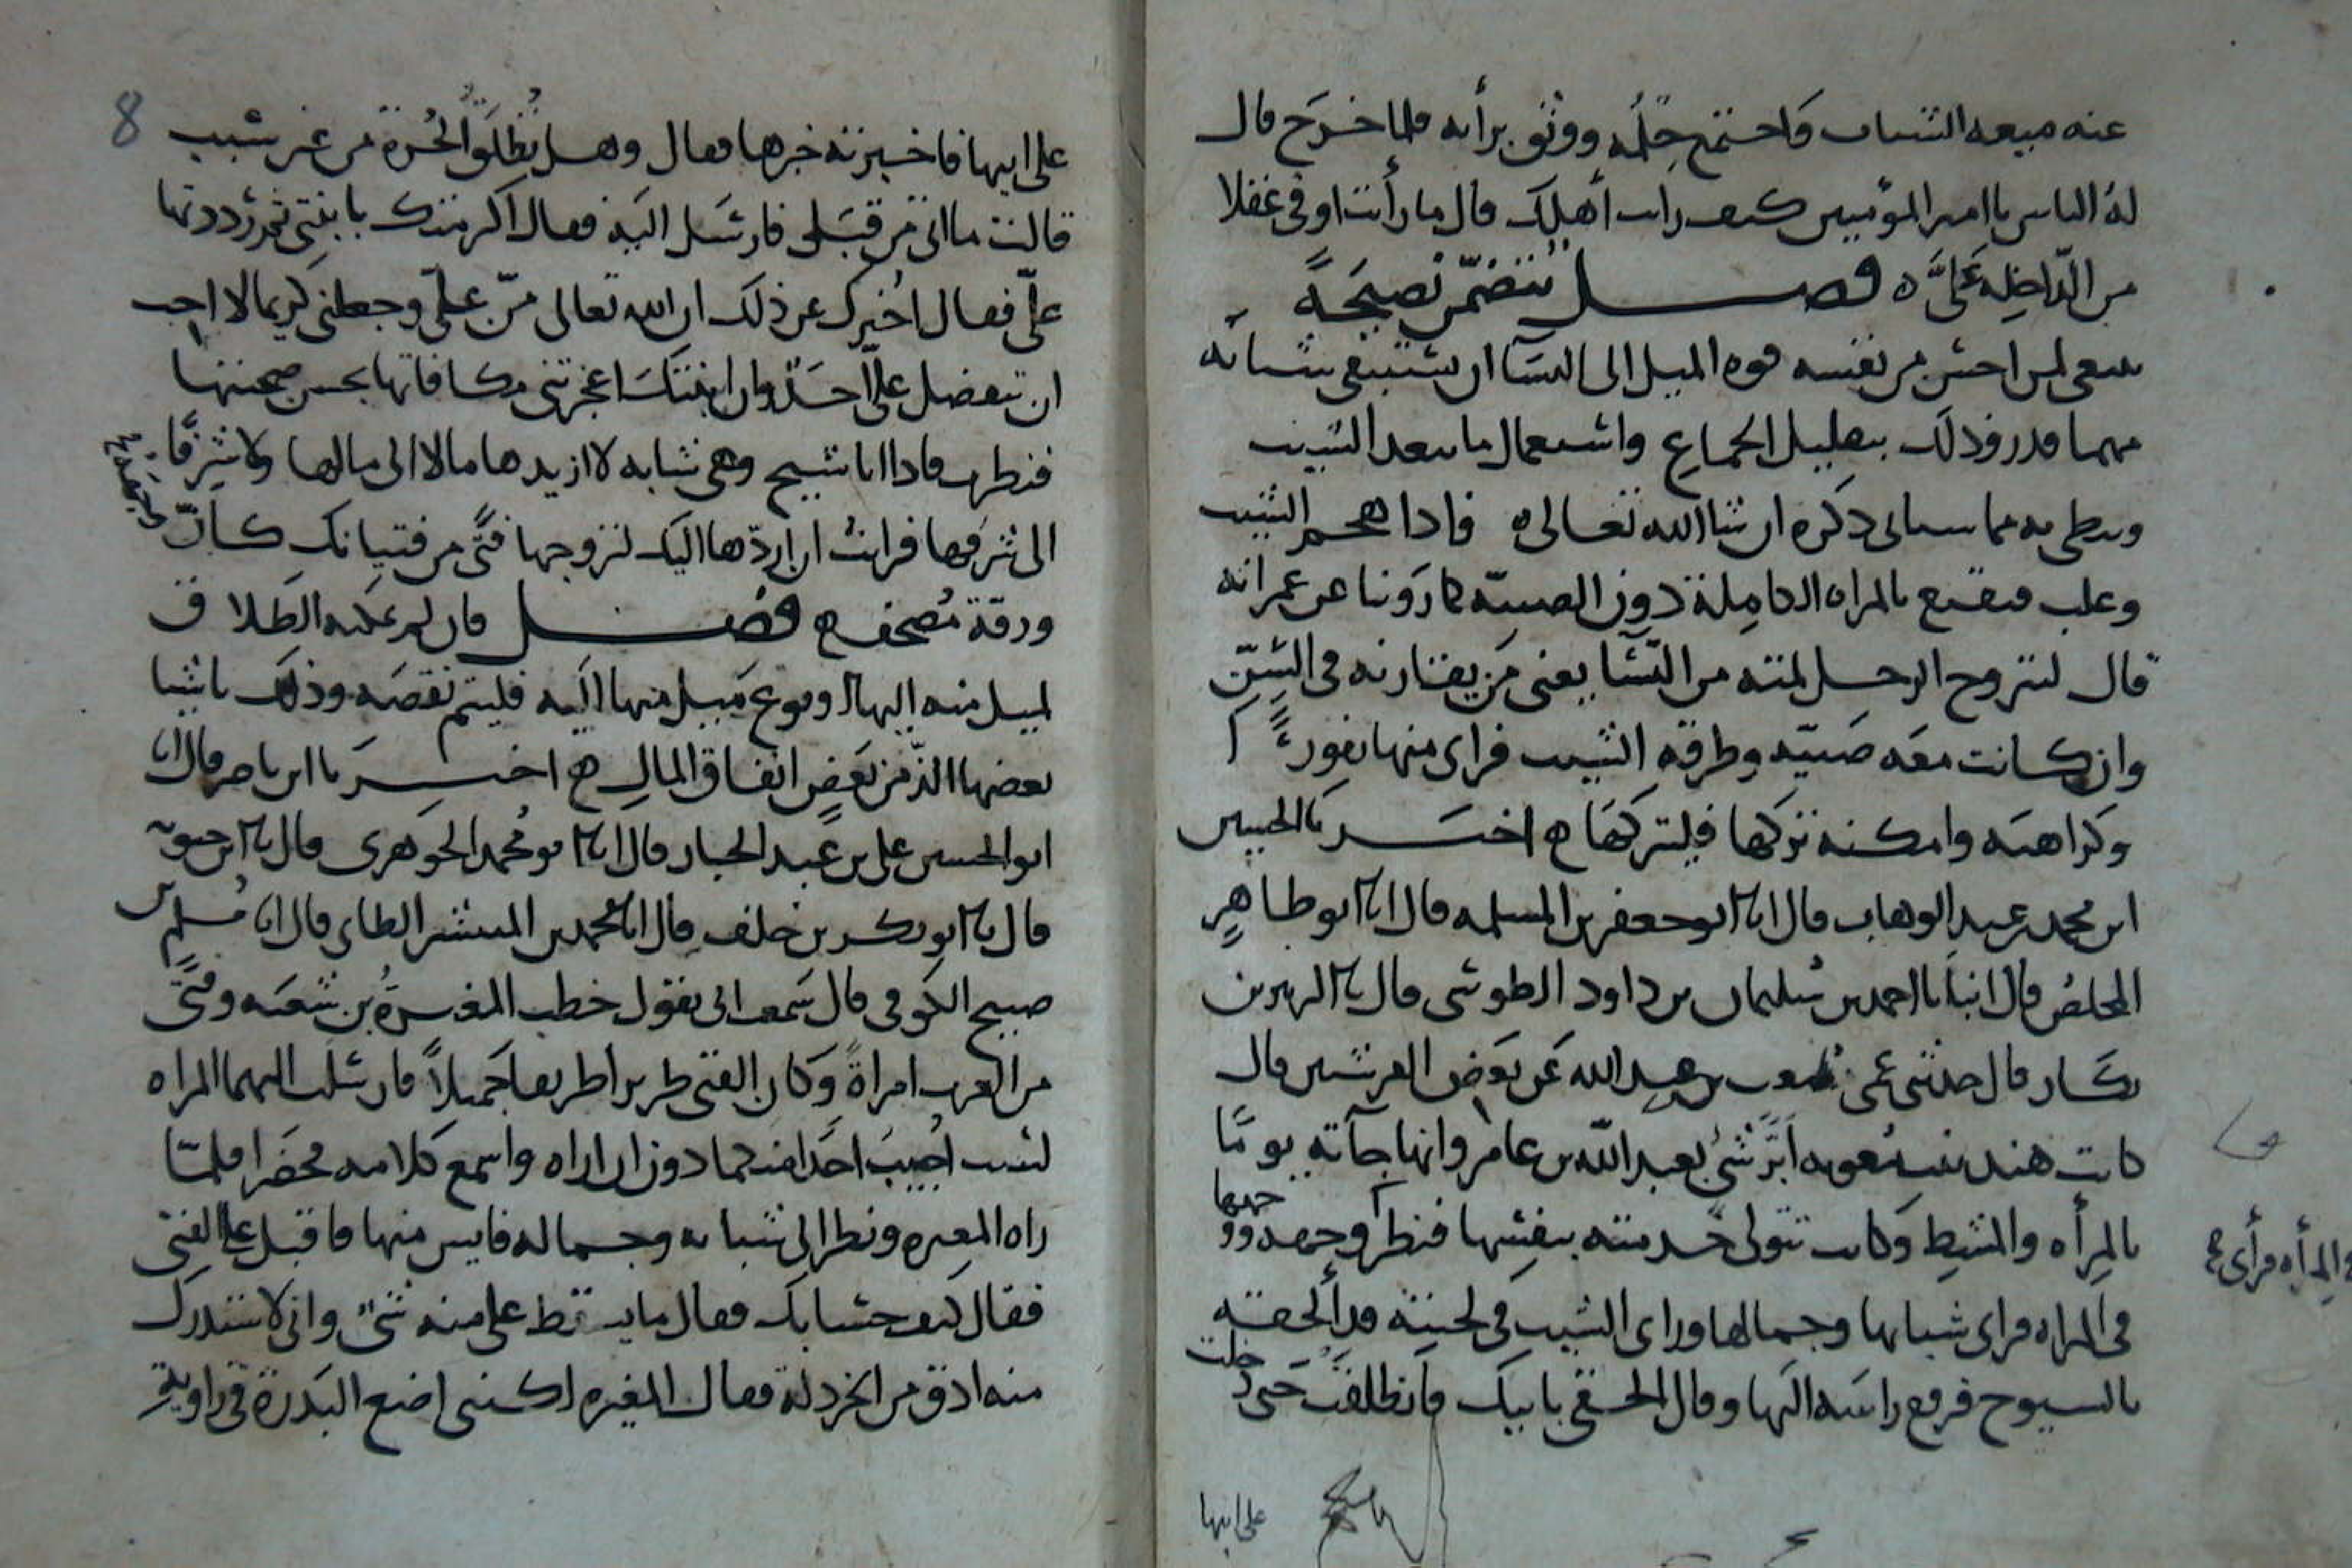 عنه ميعه الشباب واحتنج حلمه ووثق برأيه فلما خرج قال
له الناس يا امير المؤمنين كيف رايت أهلك قال ما رأيت اوفى عقلا
من الداخلة علي ه فصل يتضمن نصيحة
ينبغي لمن احس من نفسه قوة الميل الى النسا ان يستبقي شبابه
مهما قدر وذلك بتقليل الجماع واستعمال ما يبعد الشيب
ويبطي به مما سياتى ذكره ان شا الله تعالى ه فاذا هجم الشيب
وغلب فيقنع بالمراه الكاملة دون الصبية كما روينا عن عمر انه
قال ليتزوج الرجل لمته من النسا يعنى من يقارنه في السن
وان كانت معه صبية وطرقه الشيب فراى منها نفورا
وكراهيه وامكنه تركها فليتركها ه اخبرنا الحسين
ابن محمد بن عبد الوهاب قال انا ابو جعفر بن المسلمه قال انا ابو طاهر
المخلص قال انبانا احمد بن سليمان بن داود الطوسي قال نا الزبير بن
بكار قال حدثني عمي مصعب بن عبد الله عن بعض القرشيين قال
كانت هند بنت معويه أبر شئ بعبد الله بن عامر وانها جآته يوما
بالمرأه والمشط وكانت تتولى خدمته بنفسها فنظر وجهه
وجهها
والمرأه فرأى
في المراه فراى شبابها وجمالها وراى الشيب في لحيته قد ألحقته
بالشيوخ فرفع راسه اليها وقال الحقي بابيك فانطلقت حتى دخلت
على ابيها
8
على ابيها فاخبرته خبرها فقال وهل تطلق الحرة من غير سبب
قالت ما اتى من قبلى فارسل اليه فقال اكرمتك بابنتي ثم رددتها
علي فقال اخبرك عن ذلك ان الله تعالى من علي وجعلني كريما لا احب
ان يتفضل علي احد وان ابنتك اعجزتني مكافاتها بحسن صحبتها
فنظرت فاذا انا شيخ وهي شابه لا ازيدها مالا الى مالها ولا شرفا
الى شرفها فرايت ان اردها اليك لتزوجها فتى من فتيانك كأن
وجهه
ورقة مصحف ه فصل فان لم يمكنه الطلاق
لميل منه اليها او وقوع ميل منها اليه فليتم نقصه وذلك باشيا
بعضها الذ من بعض انفاق المال ه اخبرنا ابن ناصر قال انا
ابو الحسين علي بن عبد الجبار قال انا ابو محمد الجوهرى قال نا ابن حيويه
قال نا ابو بكر بن خلف قال انا محمد بن المبشر الطاى قال انا مسلم بن
صبيح الكوفى قال سمعت ابي يقول خطب المغيرة بن شعبه وفتى
من العرب امراة وكان الفتى طريرا طريفا جميلا فارسلت اليهما المراه
لست اجيب احدا منكما دون ان اراه واسمع كلامه فحضرا فلما
راه المغيره ونظر الى شبابه وجماله فايس منها فاقبل على الفتى
فقال كيف حسابك فقال ما يسقط على منه شئ واني لاستدرك
منه ادق من الخردلة فقال المغيره لكننى اضع البدرة في زاوية